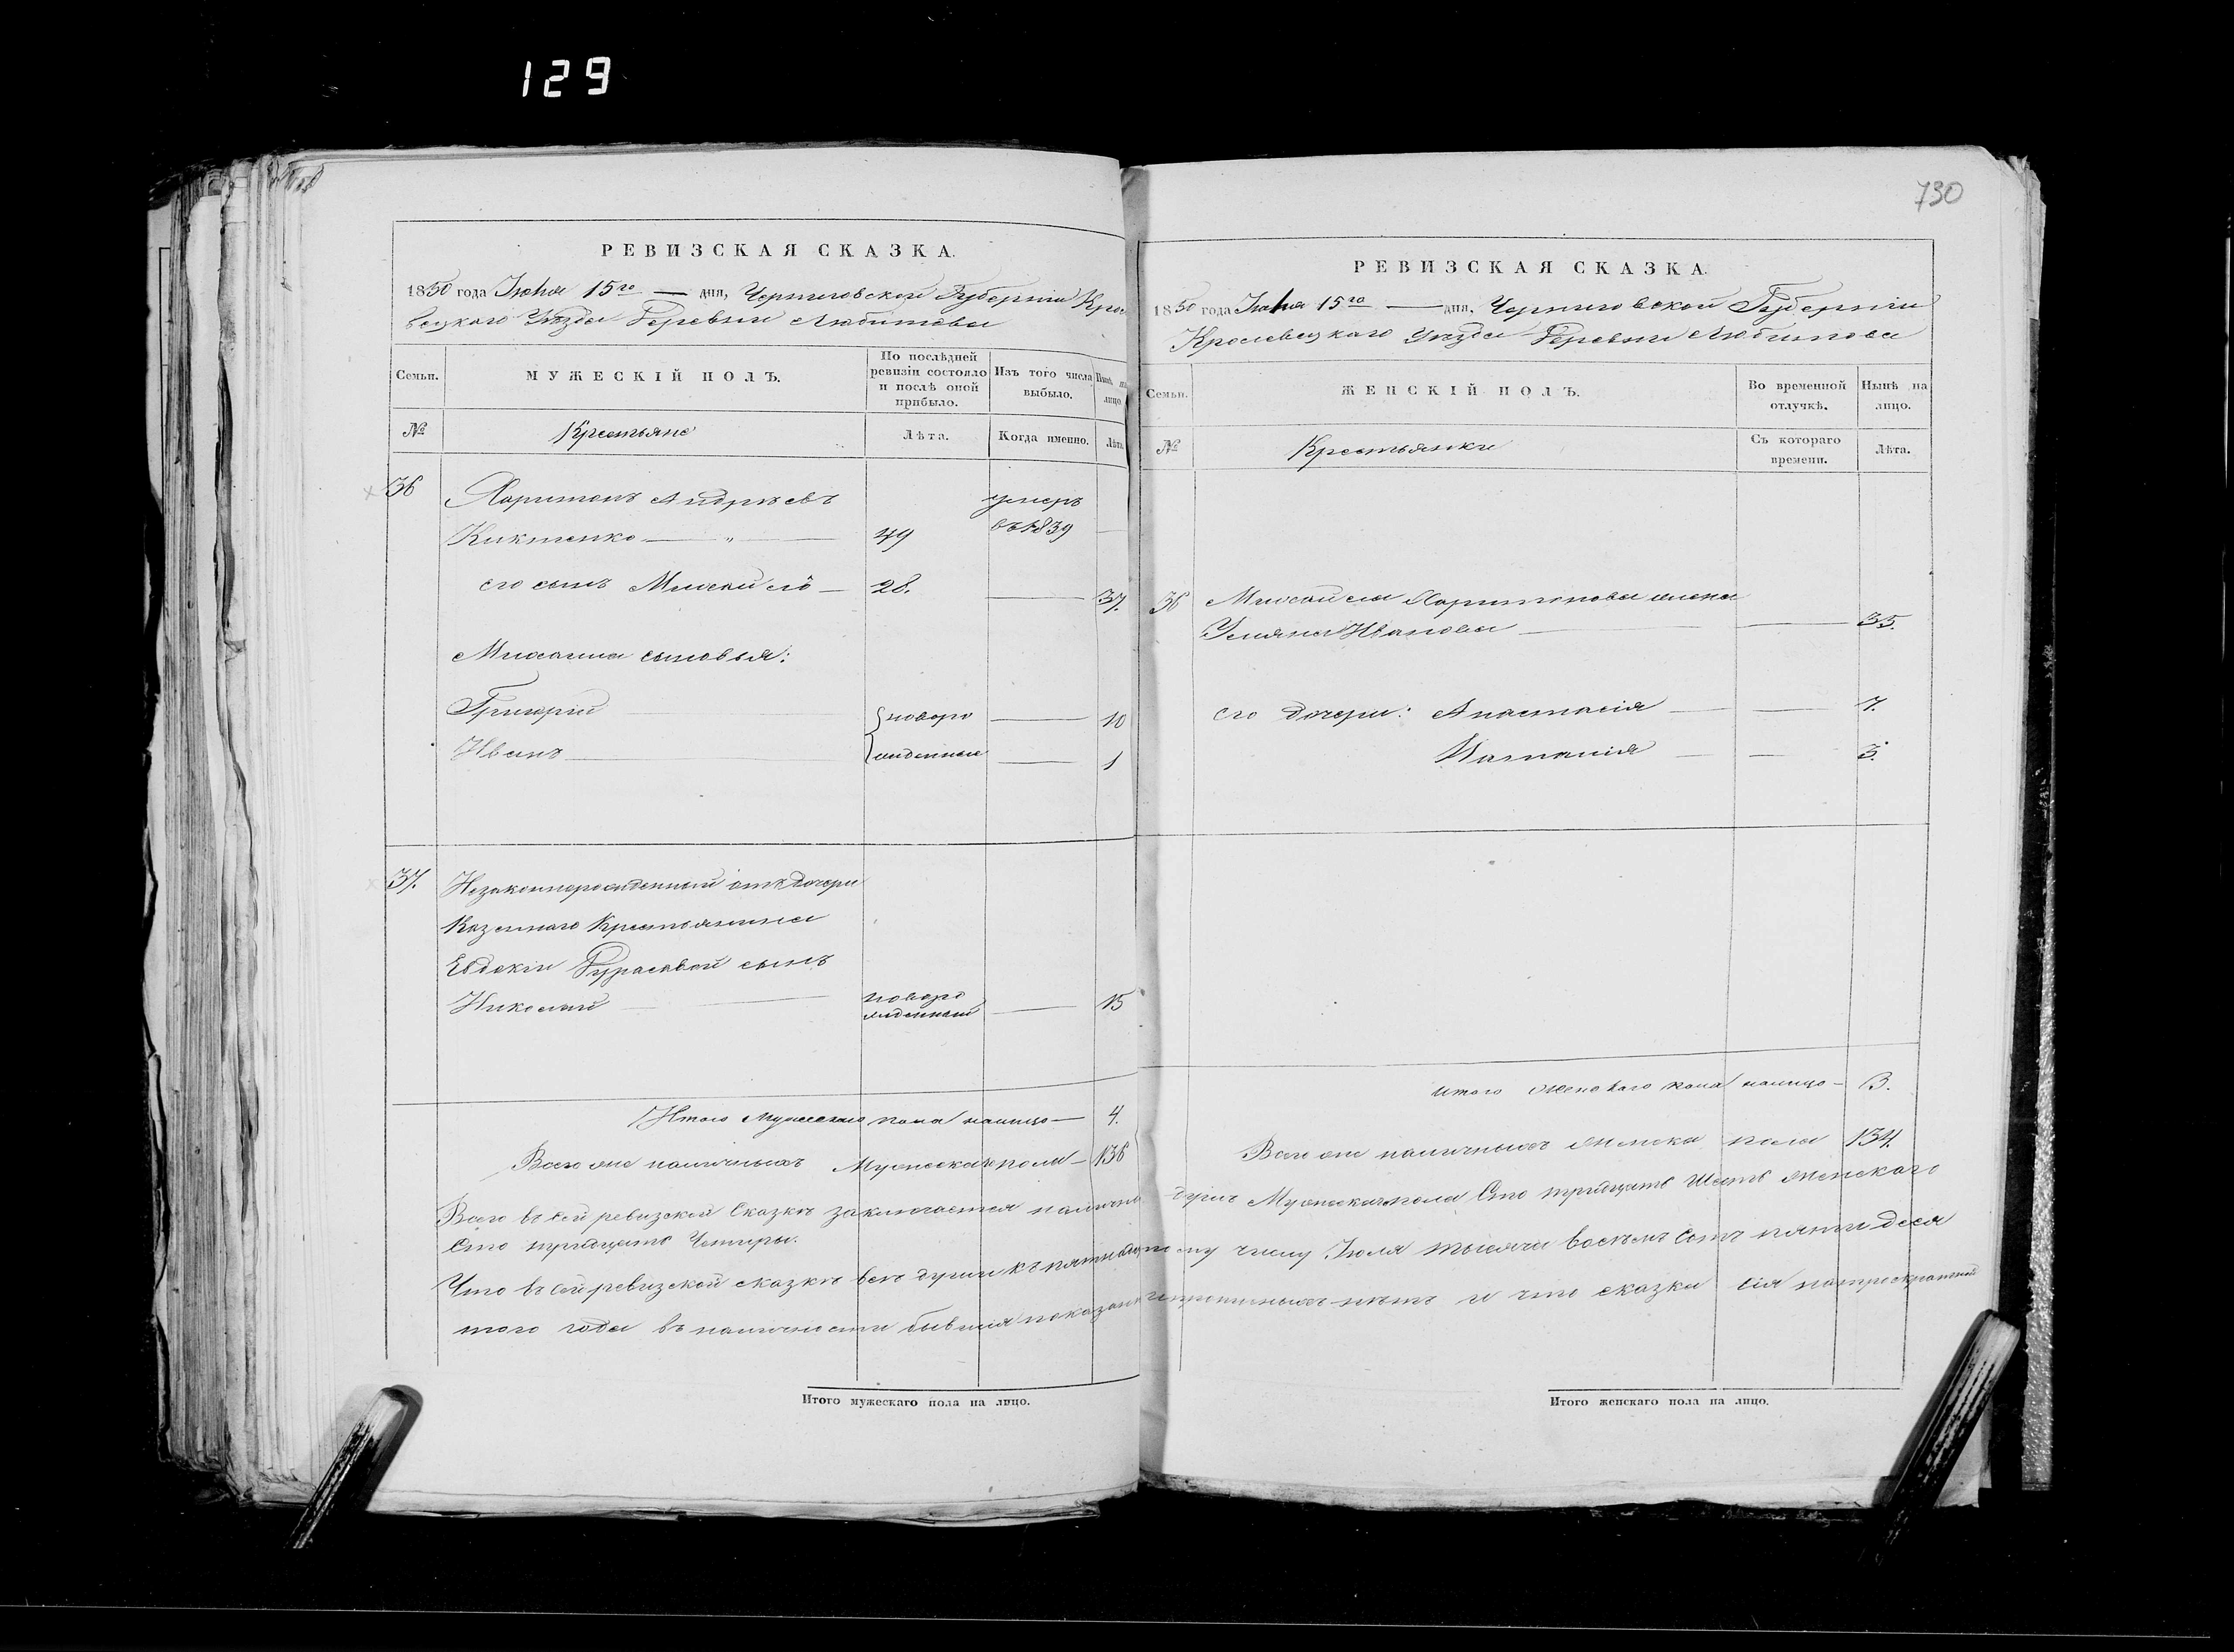 129
730
РЕВИЗСКАЯ СКАЗКА.
1850 года Іюня 15го — дня, Черниговской Губерніи Кроле
вецкаго Уѣзда Деревни Любитова
Семьи.
МУЖЕСКІЙ ПОЛЪ.
По послѣдней ревизіи состояло и послѣ оной прибыло.
Изъ того числа выбыло.
Нынѣ на лицо.
№
Крестьяне
Лѣта.
Когда именно.
Лѣта.
36
Харитонъ Андреевъ
умеръ
Никтенко — „ — 49
въ 1839
его сынъ Михайло — 28. — 37.
Михаила сыновья:
Григорій новоро — 10
Иванъ — жденные — 1
37. Незаконнорожденный отъ дочери
Казеннаго Крестьянина
Евдокіи сынъ
Николай — новоро
жденный — 15
Итого Мужескаго пола налицо — 4.
Всего оне наличныхъ Мужеска пола — 136
Итого мужескаго пола на лицо.
РЕВИЗСКАЯ СКАЗКА.
1850 года Іюня 15го — дня, Черниговской Губерніи
Кролевецкаго Уѣзда Деревни Любитова
Семьи.
ЖЕНСКІЙ ПОЛЪ.
Во временной отлучкѣ.
Нынѣ на лицо.
№
Крестьянки
Съ котораго времени.
Лѣта.
36 Михайла Харитонова жена
Ульяна Иванова — — 35.
его дочери: Анастасія — — 7.
Наталія — — 3.
Итого Женскаго пола налицо — 3.
Всего оне наличныхъ Женска пола 134.
Всего въ сей ревизской Сказкѣ заключается налично душъ Мужеска пола Сто тридцать Шесть Женскаго
Сто тридцать Четыры.
Что въ сей ревизской сказкѣ всѣ души къ пятнадцатому числу Іюля тысяча восемь сотъ пятидеся
того года въ наличности бывшія показаны и прописныхъ нѣтъ и что сказка сія
Итого женскаго пола на лицо.